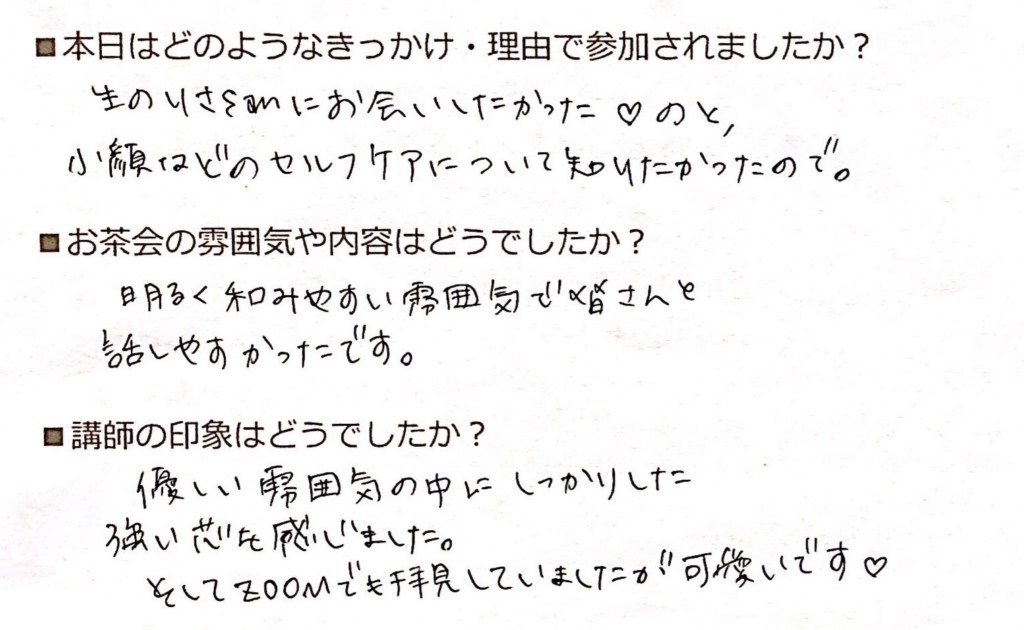 ■本日はどのようなきっかけ・理由で参加されましたか？
生のりさSanにお会いしたかった♡のと,
小顔などのセルフケアについて知りたかったので。
■お茶会の雰囲気や内容はどうでしたか？
明るく和みやすい雰囲気で皆さんと
話しやすかったです。
■講師の印象はどうでしたか？
優しい雰囲気の中にしっかりした
強い芯を感じました。
そしてZOOMでも拝見していましたが可愛いです♡